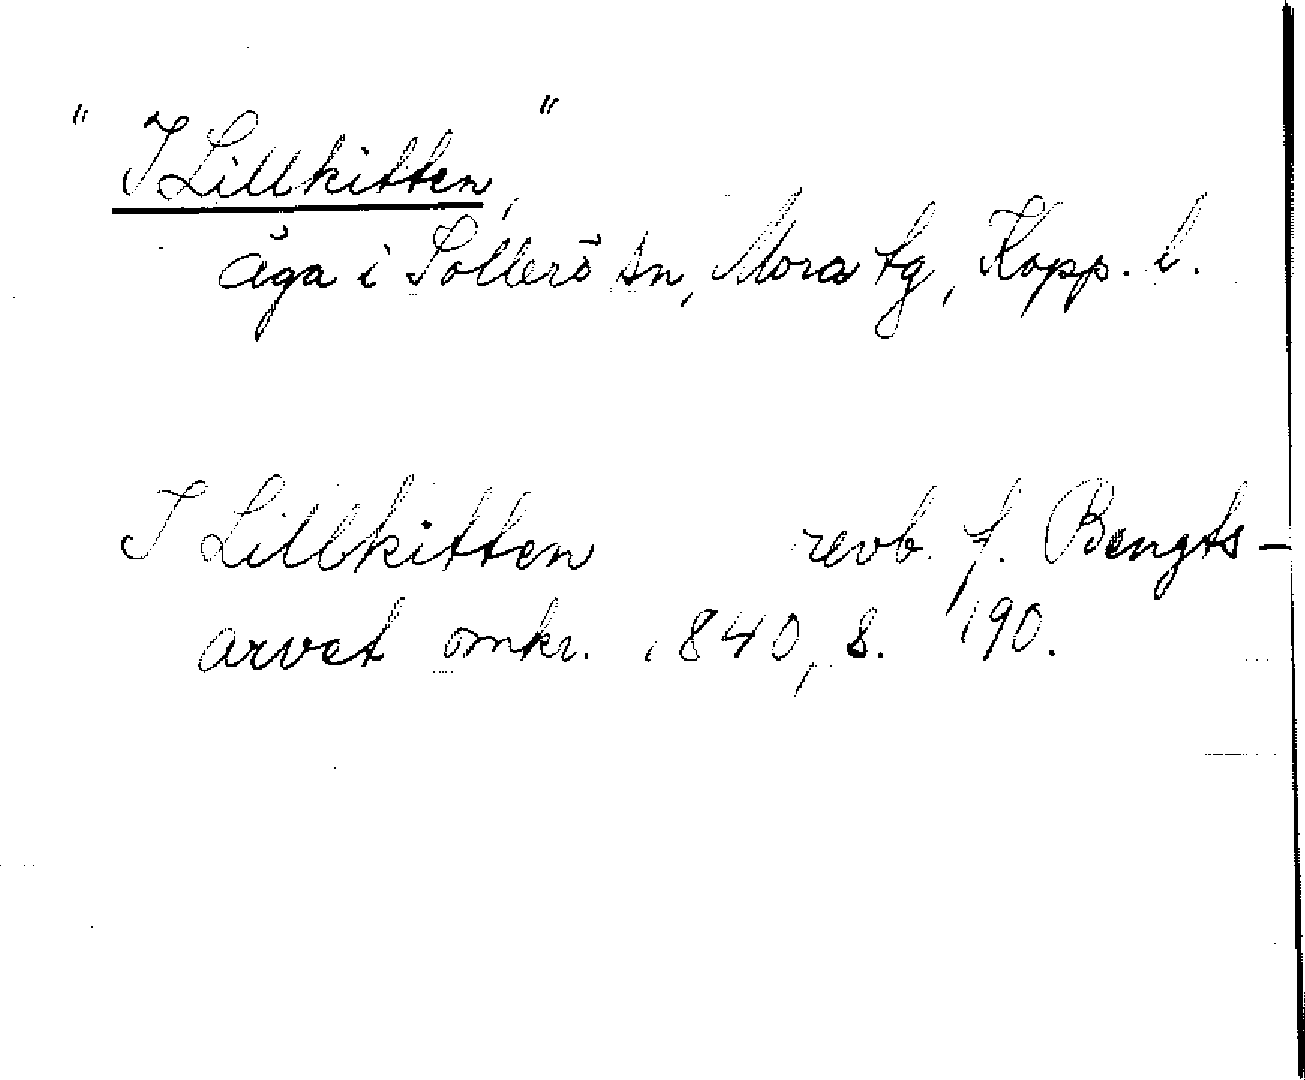 "I Lillkitten,"
äga i Sollerö sn, Mora tg, Kopp. l.
I Lillkitten revb. f. Bengts-
arvet omkr. 1840, s. 190.